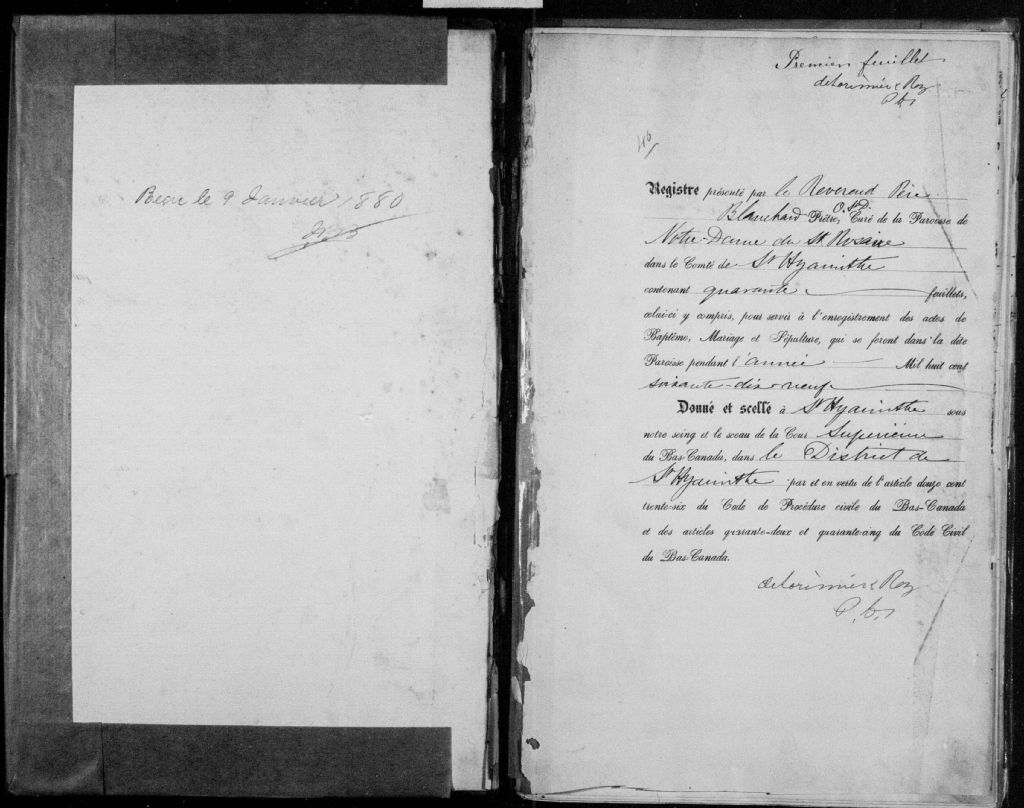 le 9 Janvier 1880
Premier feuillet
deLorimier & Roy
P.
46
Registre présenté par le Reverend Père
Blanchard Prêtre, O. St D. Curé de la Paroisse de
Notre-Dame du St Rosaire
dans le Comté de St Hyacinthe
contenant quarante feuillets,
celui-ci y compris, pour servir à l'enregistrement des actes de
Baptême, Mariage et Sépulture, qui se feront dans la dite
Paroisse pendant l'année Mil huit cent
soixante-dix-neuf
Donné et scellé à St Hyacinthe sous
notre seing et le sceau de la Cour Supérieure
du Bas-Canada, dans le District de
St Hyacinthe par et en vertu de l'article douze cent
trente-six du Code de Procédure civile du Bas-Canada
et des articles quarante-deux et quarante-cinq du Code Civil
du Bas-Canada.
deLorimier & Roy
P.